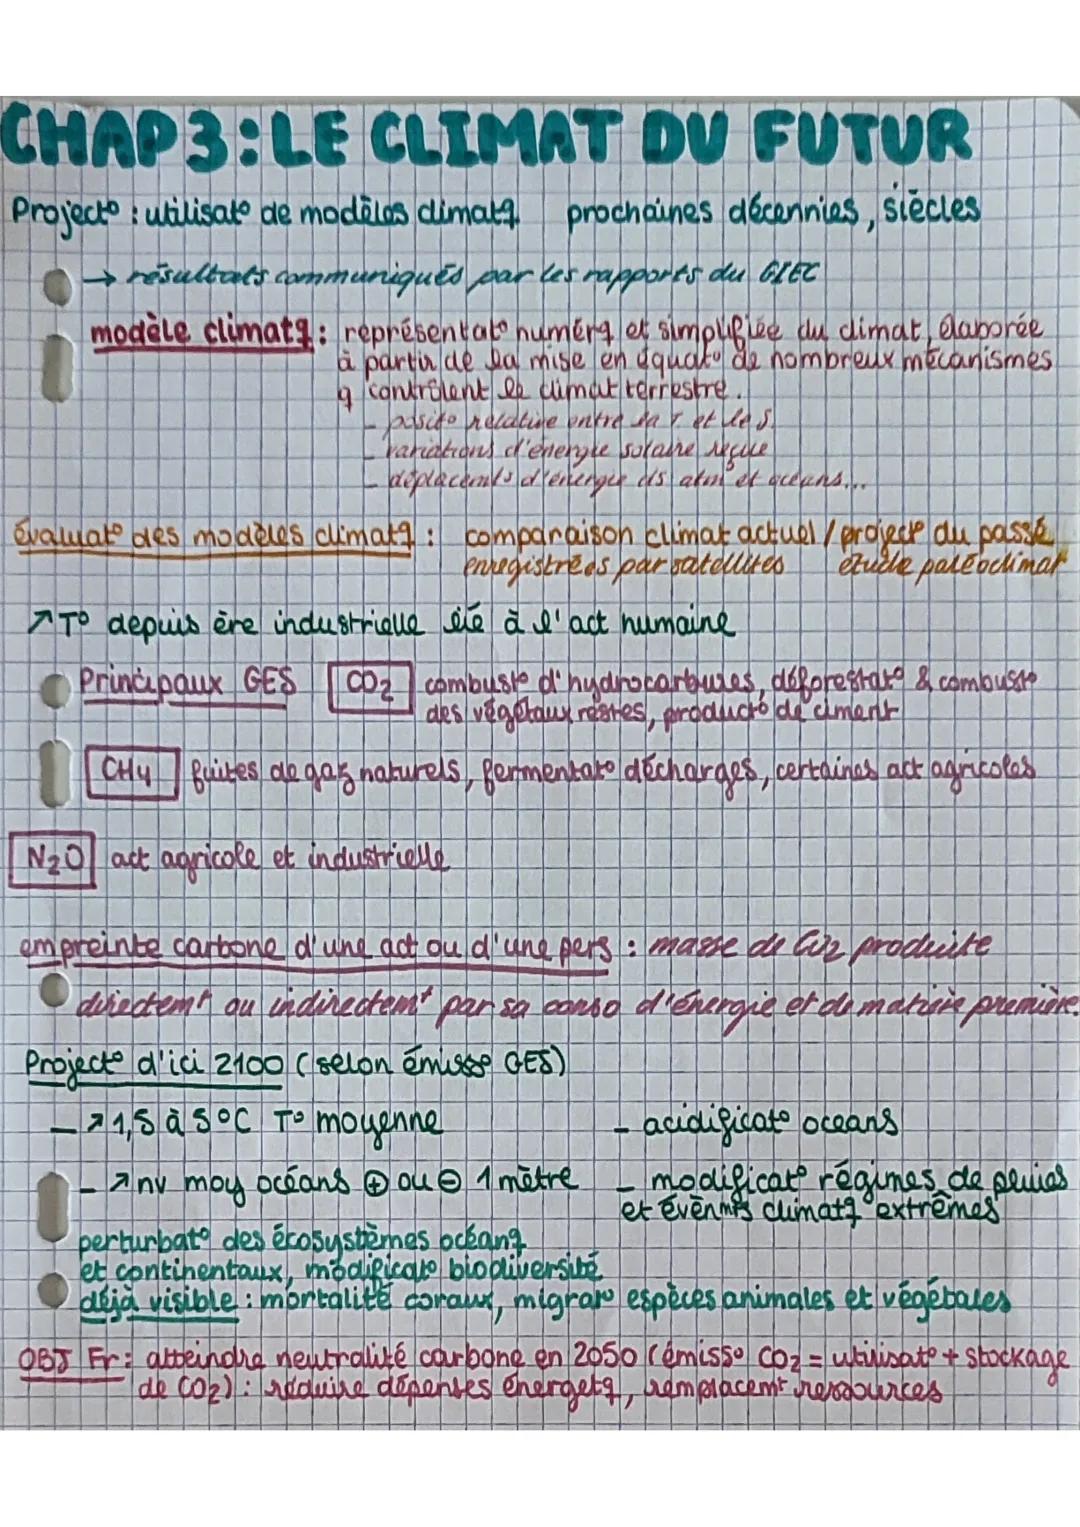 CHAP 3 : LE CLIMAT DU FUTUR
Project° : utilisat° de modèles climatq prochaines décennies, siècles
→ résultats communiqués par les rapports du GIEC
modèle climatq : représentat° numérq et simplifiée du climat, élaborée
à partir de la mise en équat° de nombreux mécanismes
q contrôlent le climat terrestre.
- posit° relative entre la T et le S.
- variations d'énergie solaire reçue
- déplacemts d'énergie ds atm et océans...
évaluat° des modèles climatq : comparaison climat actuel / project° du passé
enregistrées par satellites étude paléoclimat
↗ T° depuis ère industrielle lié à l'act humaine
Principaux GES CO2 combust° d'hydrocarbures, déforestat° & combust°
des végétaux restes, product° de ciment
CH4 fuites de gaz naturels, fermentat° décharges, certaines act agricoles
N2O act agricole et industrielle
empreinte carbone d'une act ou d'une pers : masse de CO2 produite
directemt ou indirectemt par sa conso d'énergie et de matière première.
Project° d'ici 2100 (selon émiss° GES)
- ↗ 1,5 à 5°C T° moyenne - acidificat° oceans
- ↗ nv moy océans ⊕ ou ⊖ 1 mètre - modificat° régimes de pluies
et évènmts climatq extrêmes
perturbat° des écosystèmes océanq
et continentaux, modificat° biodiversité
déjà visible : mortalité coraux, migrat° espèces animales et végétales
OBJ Fr : atteindre neutralité carbone en 2050 (émiss° CO2 = utilisat° + stockage
de CO2) : réduire dépenses énergetq, remplacemt ressources